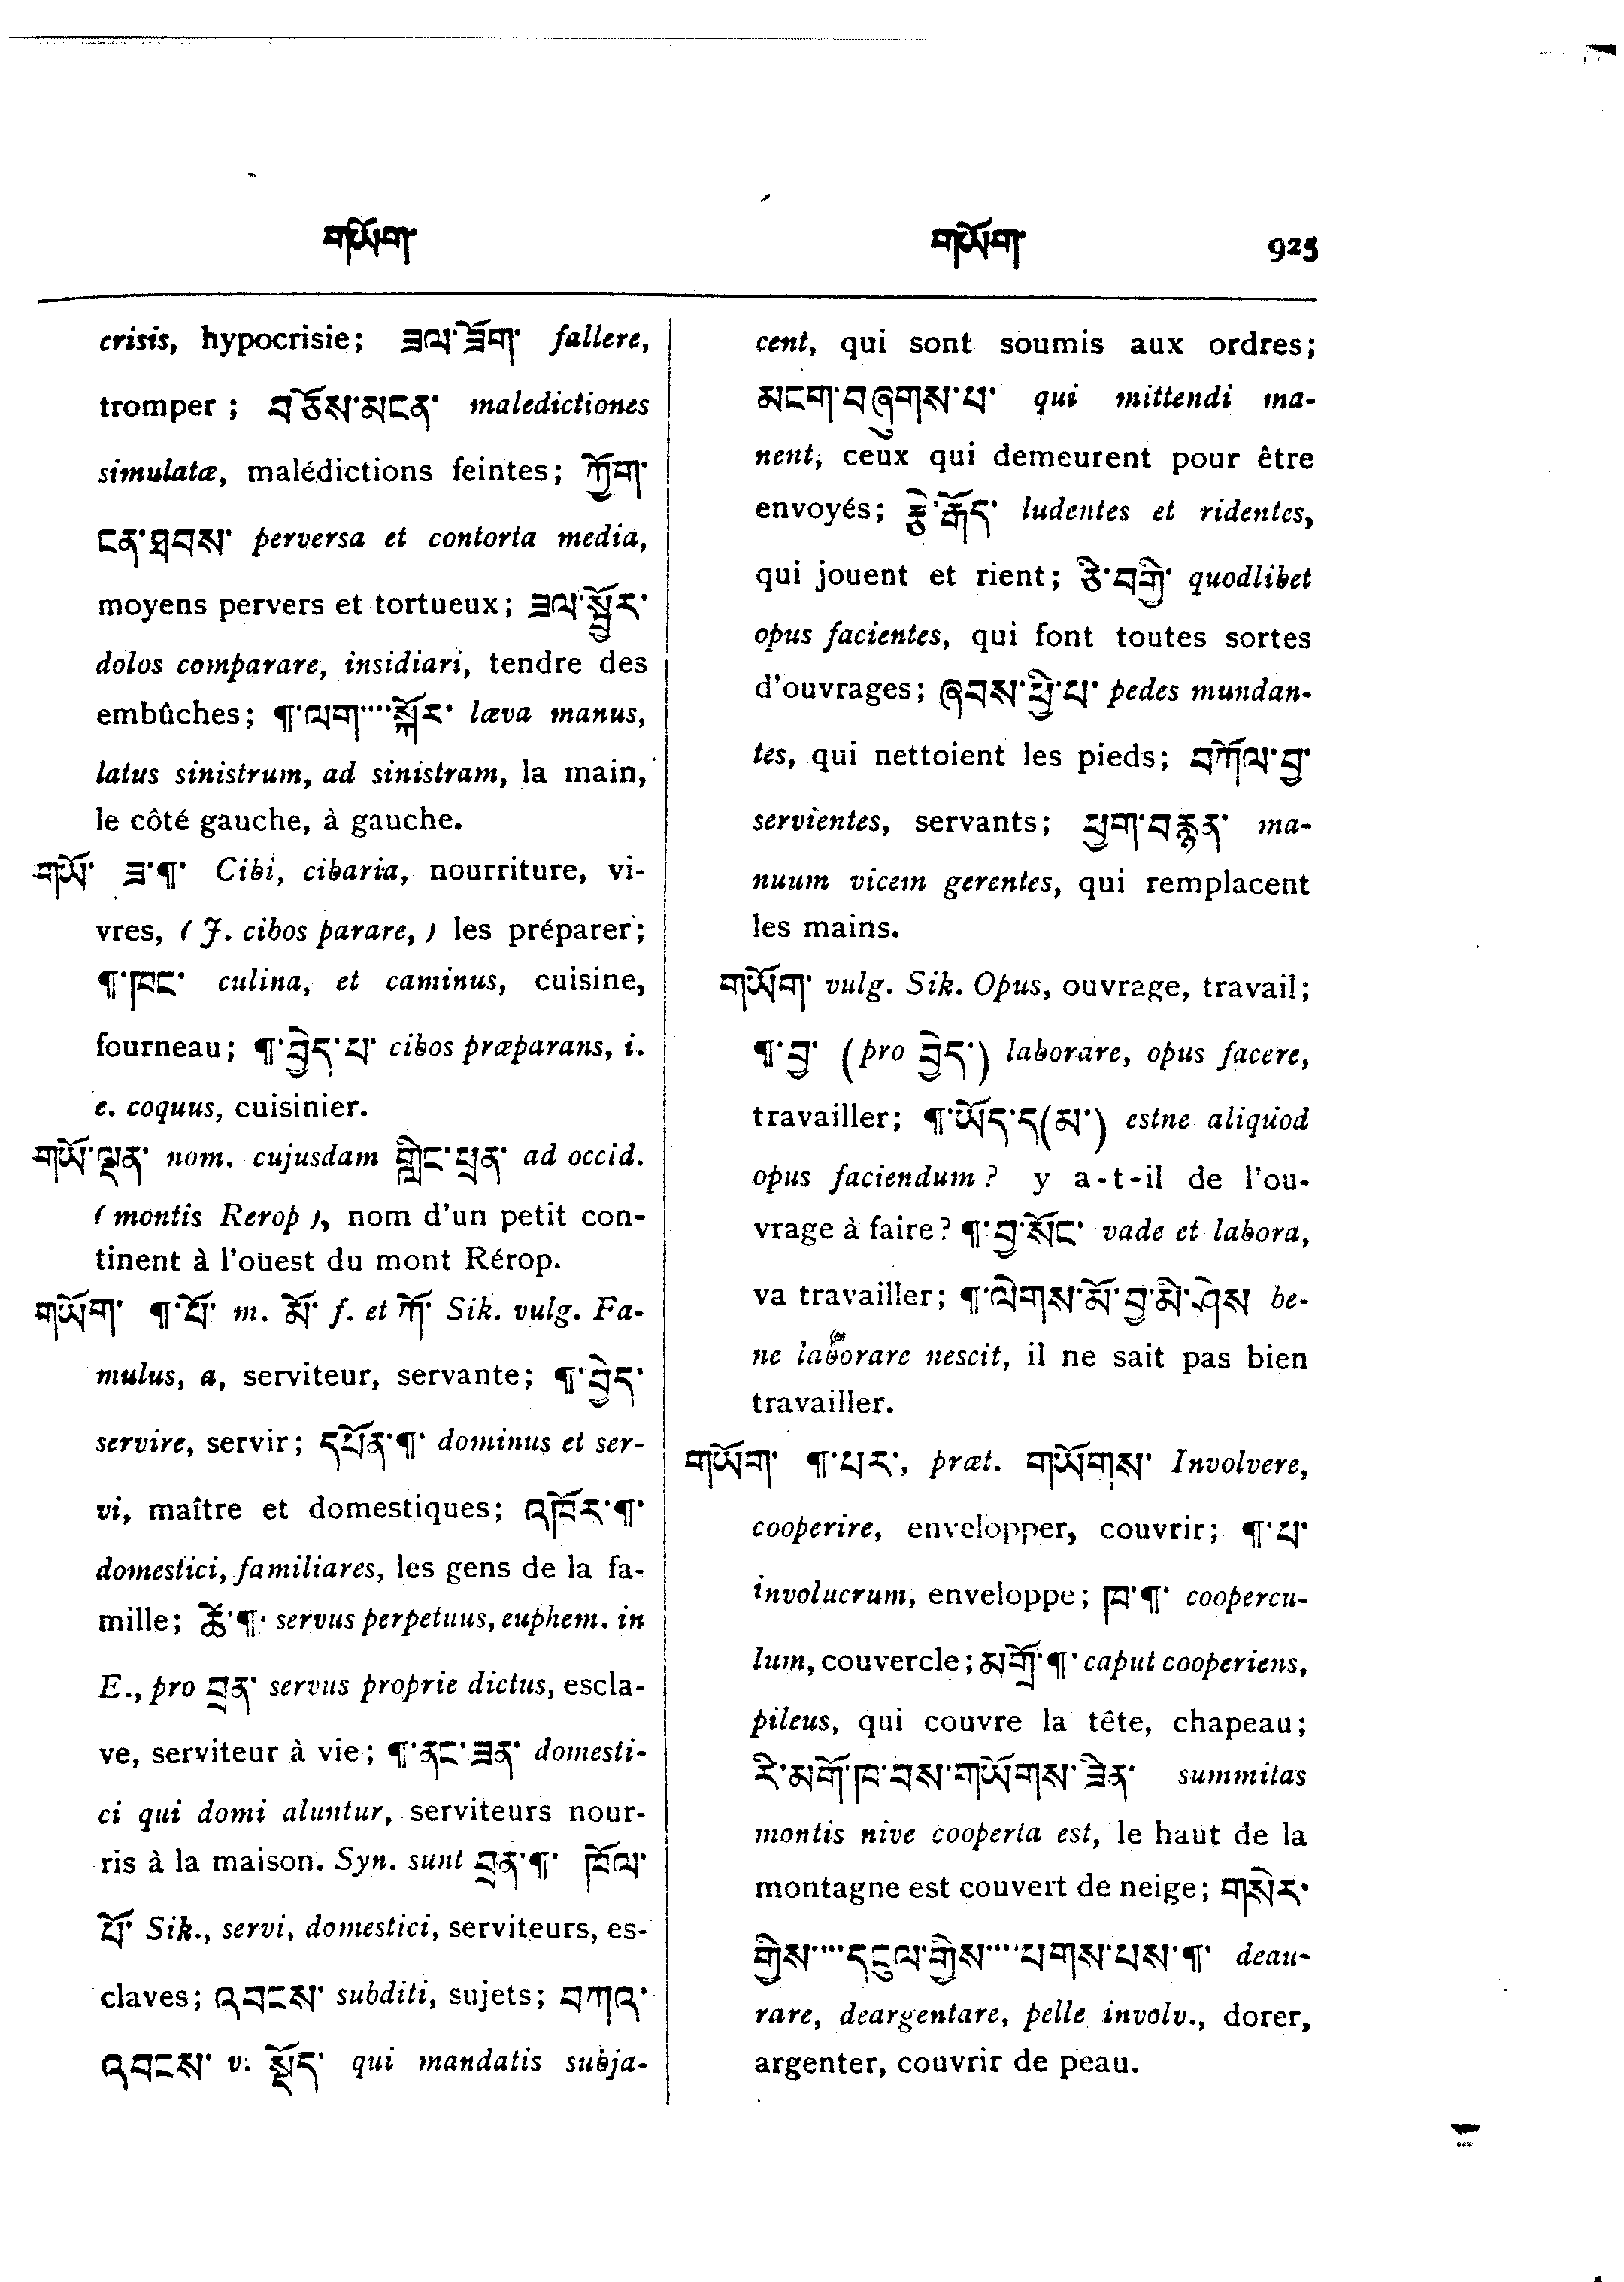 གཡོག་ གཡོག་ 925
crisis, hypocrisie; ཟལ་ཟོག་ fallere,
tromper; བཅོས་མངན་ maledictiones
simulatæ, malédictions feintes; ཀྱོག་
ངན་ཐབས་ perversa et contorta media,
moyens pervers et tortueux; ཟལ་སྦྱོར་
dolos comparare, insidiari, tendre des
embûches; ¶་ལག་····སྐོར་ læva manus,
latus sinistrum, ad sinistram, la main,
le côté gauche, à gauche.
གཡོ་ ཟ་¶་ Cibi, cibaria, nourriture, vi-
vres, (J. cibos parare,) les préparer;
¶་ཁང་ culina, et caminus, cuisine,
fourneau; ¶་བྱེད་པ་ cibos præparans, i.
e. coquus, cuisinier.
གཡོ་ལྡན་ nom. cujusdam གླིང་ཕྲན་ ad occid.
(montis Rerop), nom d'un petit con-
tinent à l'ouest du mont Rérop.
གཡོག་ ¶་པོ་ m. མོ་ f. et ཀོ་ Sik. vulg. Fa-
mulus, a, serviteur, servante; ¶་བྱེད་
servire, servir; དཔོན་¶་ dominus et ser-
vi, maître et domestiques; འཁོར་¶་
domestici, familiares, les gens de la fa-
mille; ཚེ་¶་ servus perpetuus, euphem. in
E., pro བྲན་ servus proprie dictus, escla-
ve, serviteur à vie; ¶་ནང་ཟན་ domesti-
ci qui domi aluntur, serviteurs nour-
ris à la maison. Syn. sunt བྲན་¶་ ཁོལ་
པོ་ Sik., servi, domestici, serviteurs, es-
claves; འབངས་ subditi, sujets; བཀའ་
འབངས་ v. སྡོད་ qui mandatis subja-
cent, qui sont soumis aux ordres;
མངག་བཞུགས་པ་ qui mittendi ma-
nent, ceux qui demeurent pour être
envoyés; རྩེ་རྒོད་ ludentes et ridentes,
qui jouent et rient; ཅི་བགྱི་ quodlibet
opus facientes, qui font toutes sortes
d'ouvrages; ཞབས་ཕྱི་པ་ pedes mundan-
tes, qui nettoient les pieds; བཀོལ་བྱ་
servientes, servants; ཕྱག་བརྙན་ ma-
nuum vicem gerentes, qui remplacent
les mains.
གཡོག་ vulg. Sik. Opus, ouvrage, travail;
¶་བྱ་ (pro བྱེད་) laborare, opus facere,
travailler; ¶་ཡོད་ད(མ་) estne aliquod
opus faciendum? y a-t-il de l'ou-
vrage à faire? ¶་བྱ་སོང་ vade et labora,
va travailler; ¶་ལེགས་མོ་བྱ་མི་ཤེས be-
ne laborare nescit, il ne sait pas bien
travailler.
གཡོག་ ¶་པར་, præt. གཡོགས་ Involvere,
cooperire, envelopper, couvrir; ¶་པ་
involucrum, enveloppe; ཁ་¶་ coopercu-
lum, couvercle; མགོ་¶་ caput cooperiens,
pileus, qui couvre la tête, chapeau;
རི་མགོ་ཁ་བས་གཡོགས་ཟིན་ summitas
montis nive cooperta est, le haut de la
montagne est couvert de neige; གསེར་
གྱིས་····དངུལ་གྱིས་····པགས་པས་¶་ deau-
rare, deargentare, pelle involv., dorer,
argenter, couvrir de peau.